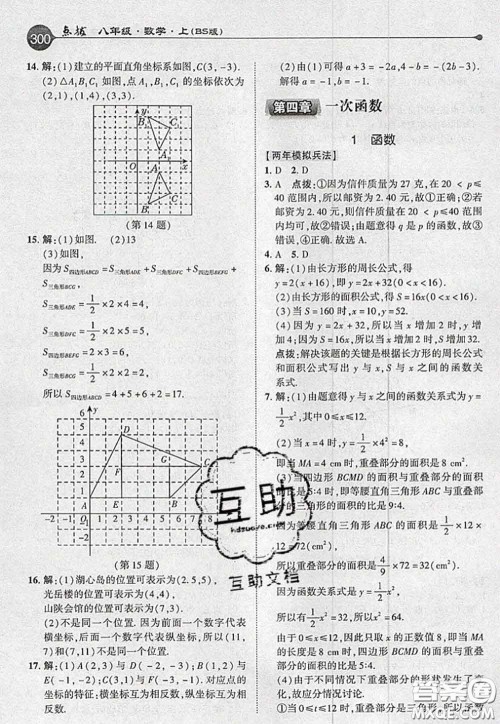 300 点拨 八年级·数学·上(BS版)
14. 解:(1)建立的平面直角坐标系如图,C(3,-3).
(2)△A₁B₁C₁如图,点A₁,B₁,C₁的坐标依次为
(2,1),(1,4),(3,3).
(第14题)
15. 解:(1)如图. (2)13
(3)如图,
因为S四边形ABCD=S三角形ABE+S三角形DFC+S四边形BEFG+
S三角形BCG,
S三角形ABE=1/2×2×4=4,
=1/2×2×5=5,
S四边形BEFG=2×3=6,
S三角形BCG=1/2×2×2=2,
所以S四边形ABCD=4+5+6+2=17.
(第15题)
16. 解:(1)湖心岛的位置可表示为(2.5,5),
光岳楼的位置可表示为(4,4),
山陕会馆的位置可表示为(7,3).
(2)不是同一个位置.因为前面一个数字代表
横坐标,后面一个数字代表纵坐标,所以(11,
7)和(7,11)不是同一个位置.
17. 解:(1)A(2,3)与D(-2,-3);B(1,2)与
E(-1,-2);C(3,1)与F(-3,-1).对应点的
坐标的特征:横坐标互为相反数,纵坐标互为
相反数.
(2)由(1)可得
解得a=-1
第四章 一次函数
1 函数
【两年模拟兵法】
1. D 2. D
3. A 点拨:①因为信件质量为27克,在20<p≤
40范围内,所以邮资为2.40元,所以①错误;②
若邮资为2.40元,则信件质量在20<p≤40范
围内均可,故②正确;由题意得q是p的函数,故
③错误,④正确.故选A.
4. A 5. D
6. 解:(1)由长方形的周长公式,得
y=2(x+16),即y=2x+32(0<x<16).
(2)由长方形的面积公式,得S=16x(0<x<16).
(3)当S=160时,x=10.
(4)因为y=2x+32,所以当x增加2时,y增加
4;因为S=16x,所以当x增加2时,S增加32.
点拨:解决该题的关键是根据长方形的周长公式
和面积公式写出y与x,S与x之间的函数关
系式.
7. 解:(1)由题意得y与x之间的函数关系式为y=
1/2x²(0≤x≤12).
(2)当x=4时,y=1/2×4²=8,
即当MA=4 cm时,重叠部分的面积是8 cm²;
当四边形BCMD的面积与重叠部分的面积的
比是5:4时,即三角形ABC与重叠部分的
面积的比是9:4.
因为等腰直角三角形ABC的面积是1/2×12×
12=72(cm²),所以重叠部分的面积是4/9×72=
32(cm²).
由题意可知y=1/2x²,
所以1/2x²=32,
(由于0≤x≤12,所以x只取正数值8,即当
MA=8 cm时,四边形BCMD的面积与重叠部
互助
hdzuoye.com
互助文档
答案圈
MXQE.COM